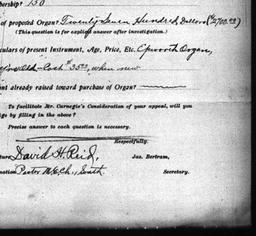 bership? 150
of proposed Organ? Twenty Seven Hundred Dollars ($2700.00)
(This question is for explicit answer after investigation.)
culars of present Instrument, Age, Price, Etc. Epworth Organ,
Old-Cost $35.00, when new
nt already raised toward purchase of Organ?
To facilitate Mr. Carnegie's Consideration of your appeal, will you
ige by filling in the above?
Precise answer to each question is necessary.
Respectfully,
ture David H. Reid, Jas. Bertram,
nation Pastor M.E.Ch., South. Secretary.